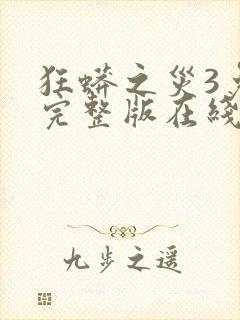 狂蟒之灾3
完整版在线
九步之遥